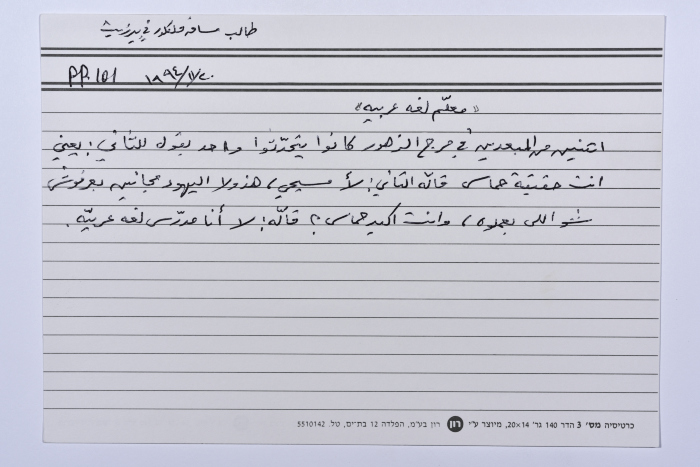 طالب مساق فلكلور في بيرزيت
PP. 151 ١٨٩٤/١١/٢٠
"معلّم لغه عربيه"
اثنين من المبعدين في مرج الزهور كانوا يتحدّثوا واحد بقول للثاني: يعني
انت حقيقة حماس قالّه الثاني: لأ مسيحي، هذولا اليهود مجانين بعرفوش
شو اللي بعملوه، وانت اكيد حماس؟ قالّه: لا أنا مدرّس لغه عربيّه.
כרטיסיה מס' 3 הדר 140 גר' 14×20, מיוצר ע"י רון רון בע"מ, הפלדה 12 בת-ים, טל. 5510142